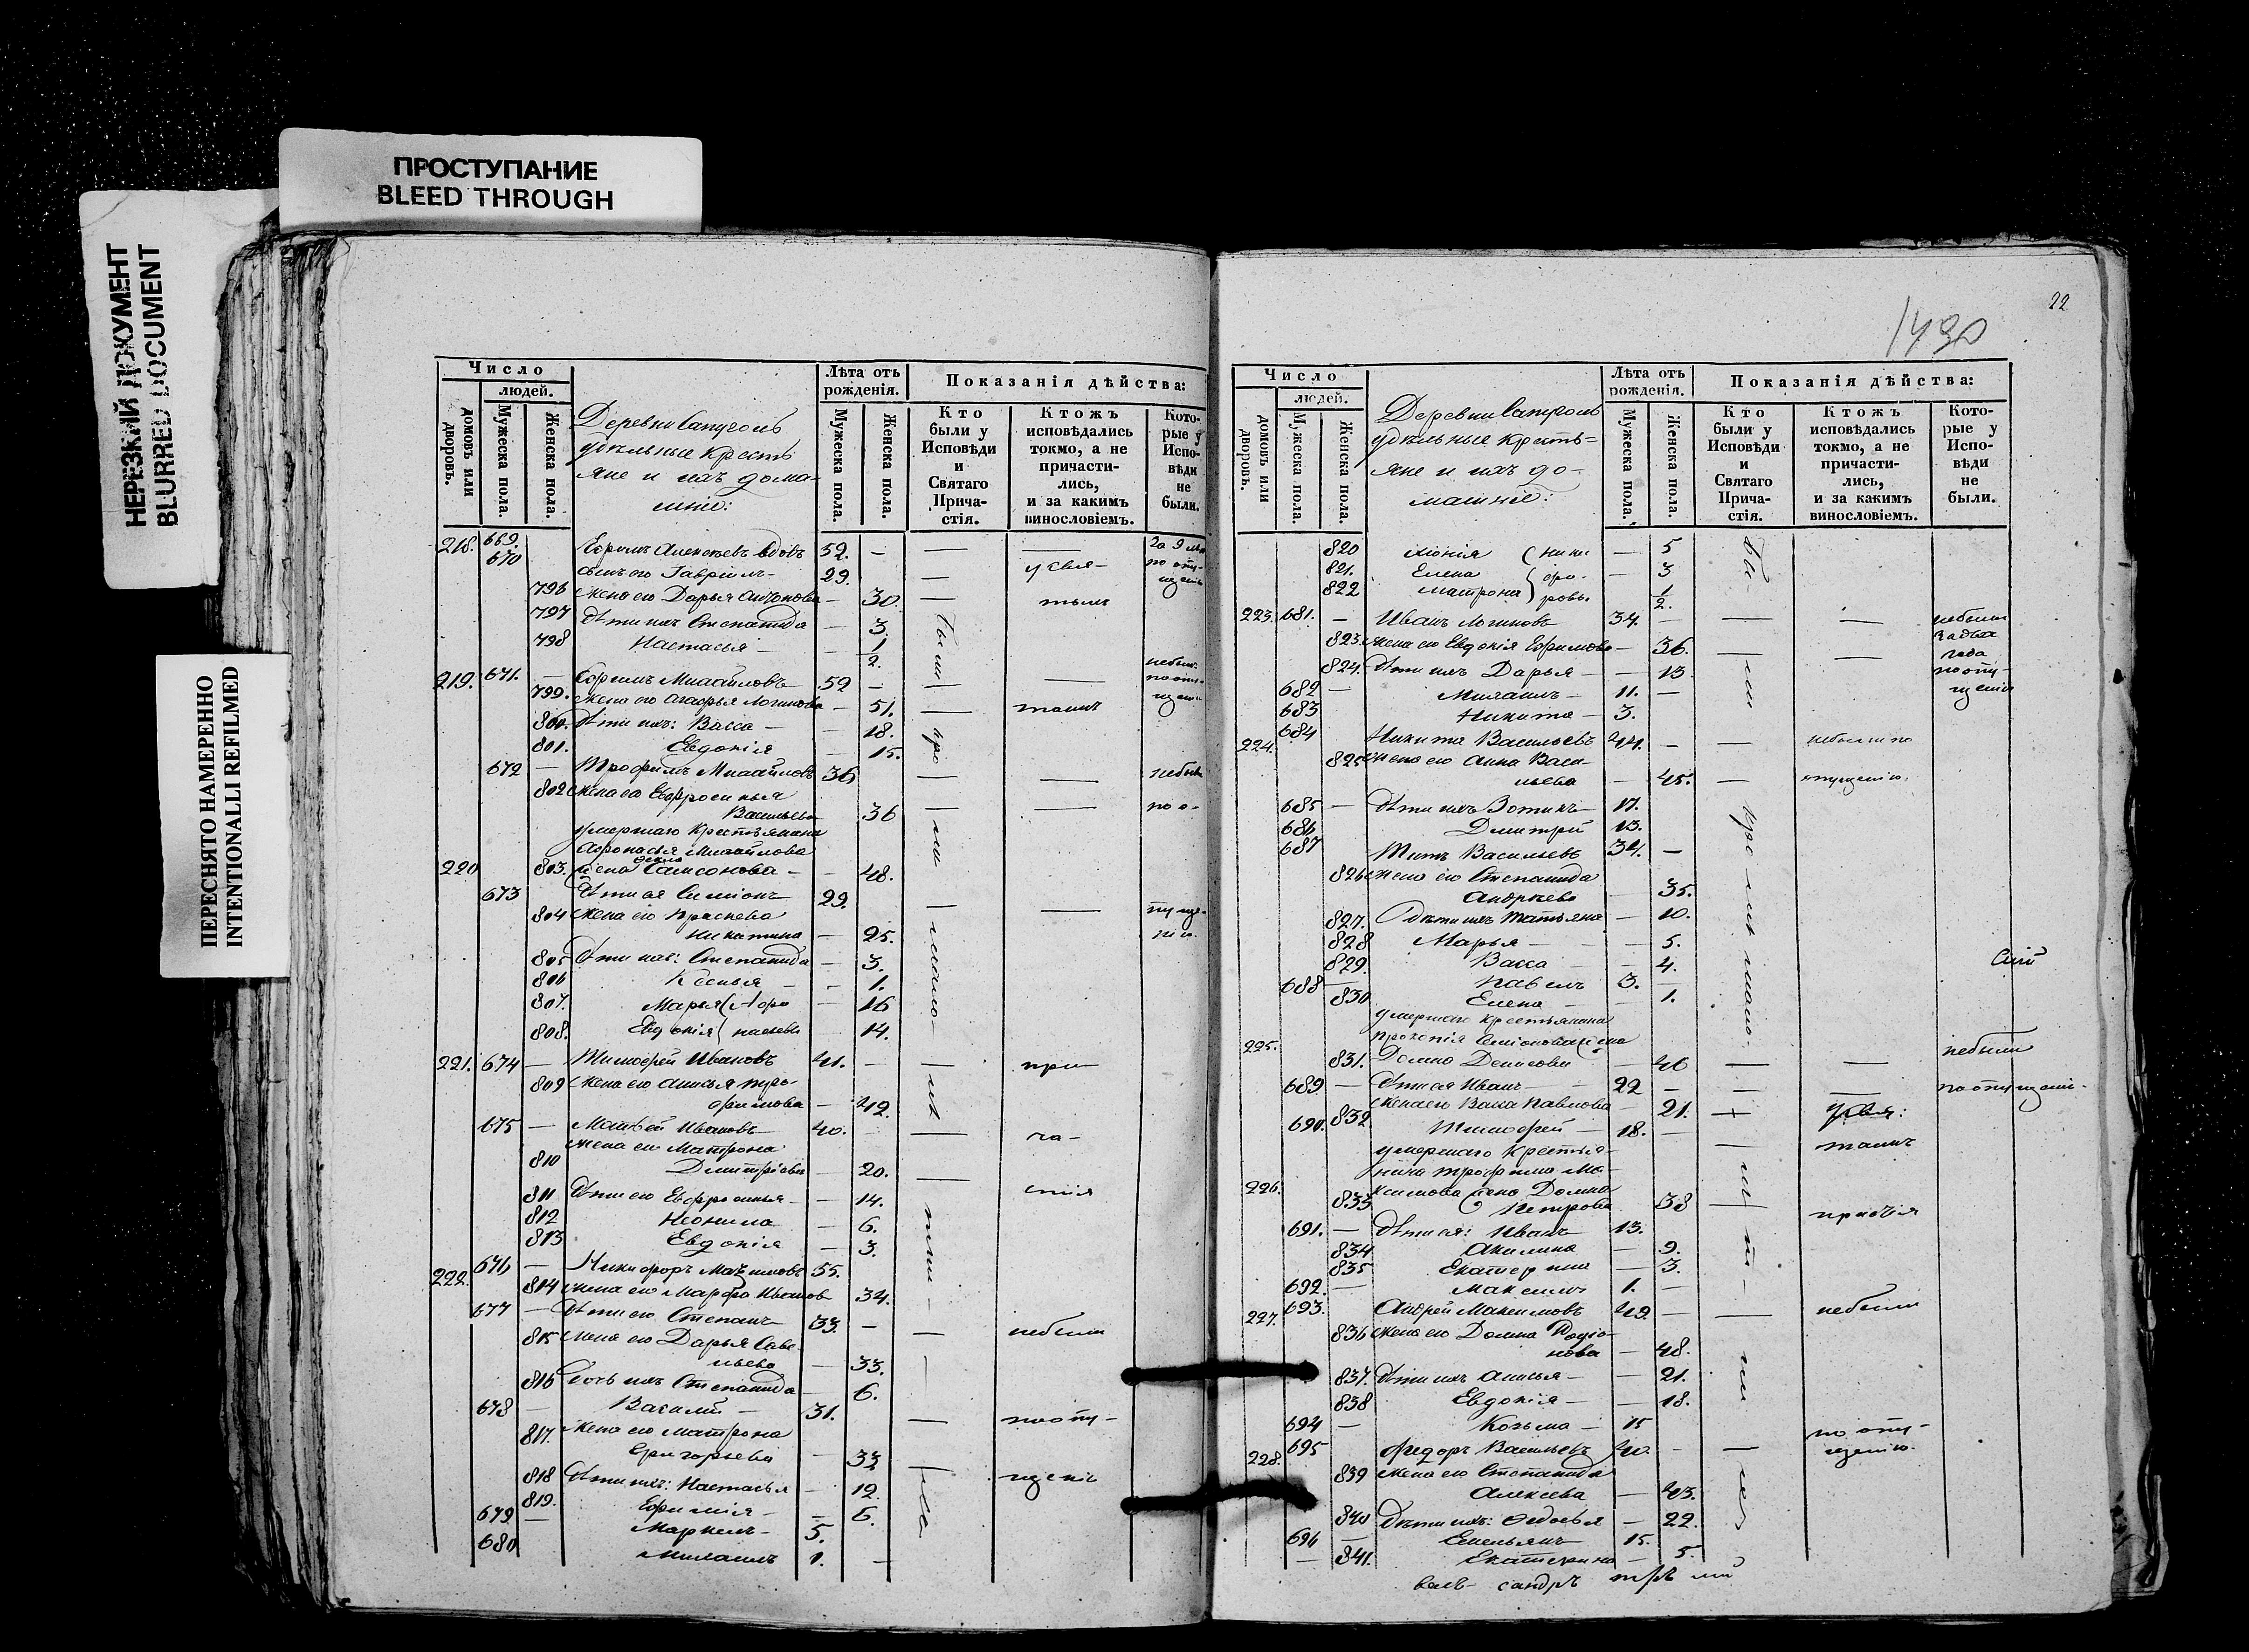 ПРОСТУПАНИЕ
BLEED THROUGH
НЕРЕЗКИЙ ДОКУМЕНТ
BLURRED DOCUMENT
ПЕРЕСНЯТО НАМЕРЕННО
INTENTIONALLI REFILMED
Число
людей.
домовъ или дворовъ.
Мужеска пола.
Женска пола.
Деревни
удѣльные кресть
яне и ихъ дома-
шніе:
Лѣта отъ рожденія.
Мужеска пола.
Женска пола.
Показанія дѣйства:
Кто были у Исповѣди и Святаго Прича-стія.
Ктожъ исповѣдались токмо, а не причасти-лись, и за какимъ винословіемъ.
Кото-рые у Испо-вѣди не были.
218. 669. Ефремъ Алексѣевъ вдовъ 52. —
670 сынъ его Гавріилъ 29.
796 жена его Дарья Антонова — 30.
797 дѣти ихъ Степанида — 3.
798 Настасья — 1/2.
219. 671. — Ефремъ Михайловъ 52 —
799. жена его Агафья Логинова — 51.
800. дѣти ихъ: Васса — 18.
801. Евдокія — 15.
672 — Трофимъ Михайловъ 36
802 жена его Евфросинья
Васильева 36
умершаго крестьянина
Афонасья Михайлова
220 803. жена Самсонова — 48.
673 дѣти ея Симіонъ 29.
804 жена его Прасковья
Никитина — 25.
805 дѣти ихъ: Степанида — 3.
806 Ксенья — 1.
807. Марья 16
808. Евдокія 14.
221. 674 — Тимофей Ивановъ 41. —
809 жена его Анисья Тро-
фимова — 42.
675 — Матвей Ивановъ 40.
810 жена его Матрона
Дмитріева — 20.
811 дѣти его Евфросинья — 14.
812 Неонила — 6.
813 Евдокія — 3.
222. 676 — Никифоръ Максимовъ 55.
814 жена его Марфа Иванов 34.
677 — дѣти его Степанъ 33. —
815 жена его Дарья Саве-
льева — 33.
816 дочь ихъ Степанида — 6.
678 — Василій — 31.
817. жена его Матрона
Григорьева — 33
818 дѣти ихъ: Настасья — 12.
819. Ефимія — 6.
679 — Маркелъ — 5.
680 Михаилъ 1. —
22
Число
людей.
домовъ или дворовъ.
Мужеска пола.
Женска пола.
Деревни
удѣльные кресть=
яне и ихъ до-
машніе:
Лѣта отъ рожденія.
Мужеска пола.
Женска пола.
Показанія дѣйства:
Кто были у Исповѣди и Святаго Прича-стія.
Ктожъ исповѣдались токмо, а не причасти-лись, и за какимъ винословіемъ.
Кото-рые у Испо-вѣди не были.
820 — 5
821. Елена — 3
822 Матрона 1/2.
223. 681. — Иванъ Логиновъ 34. — небыли
823. жена его Евдокія Ефимова — 36.
824. дѣти ихъ Дарья — 13
682 — Михаилъ — 11. —
683 Никита — 3.
224. 684 Никита Васильевъ 44. —
825 жена его Анна Васи-
льева — 45.
685 — дѣти ихъ Зотикъ 17.
686 Дмитрій 13.
687 Титъ Васильевъ 34. —
826 жена его Степанида
Андреева — 35.
827. дѣти ихъ Татьяна — 10.
828 Марья — 5.
829. Васса — 4.
688 — Павелъ 3. —
830 Елена — 1.
умершаго крестьянина
225. Прокопія Семіонова жена
831. Домна Денисова — 46
689. — дѣти ея Иванъ 22 —
832 жена его Васса Павлова 21.
690. Тимофей — 18. —
умершаго крестья-
нина Трофима Ма-
226. ксимова жена Домна
833 Петрова 38
691. — дѣти ея: Иванъ 13.
834 Акилина — 9.
835 Екатерина — 3.
692. — Максимъ 1. —
227. 693. Андрей Максимовъ 49. —
836 жена его Домна Родіо-
нова — 48.
837. дѣти ихъ Анисья — 21.
838 Евдокія — 18.
694 — Козьма — 15
228. 695 Федоръ Васильевъ 40. —
839 жена его Степанида
Алексева — 43.
840 дѣти ихъ: Федосья — 22.
696 — Емельянъ 15.
841. Екатерина — 5.